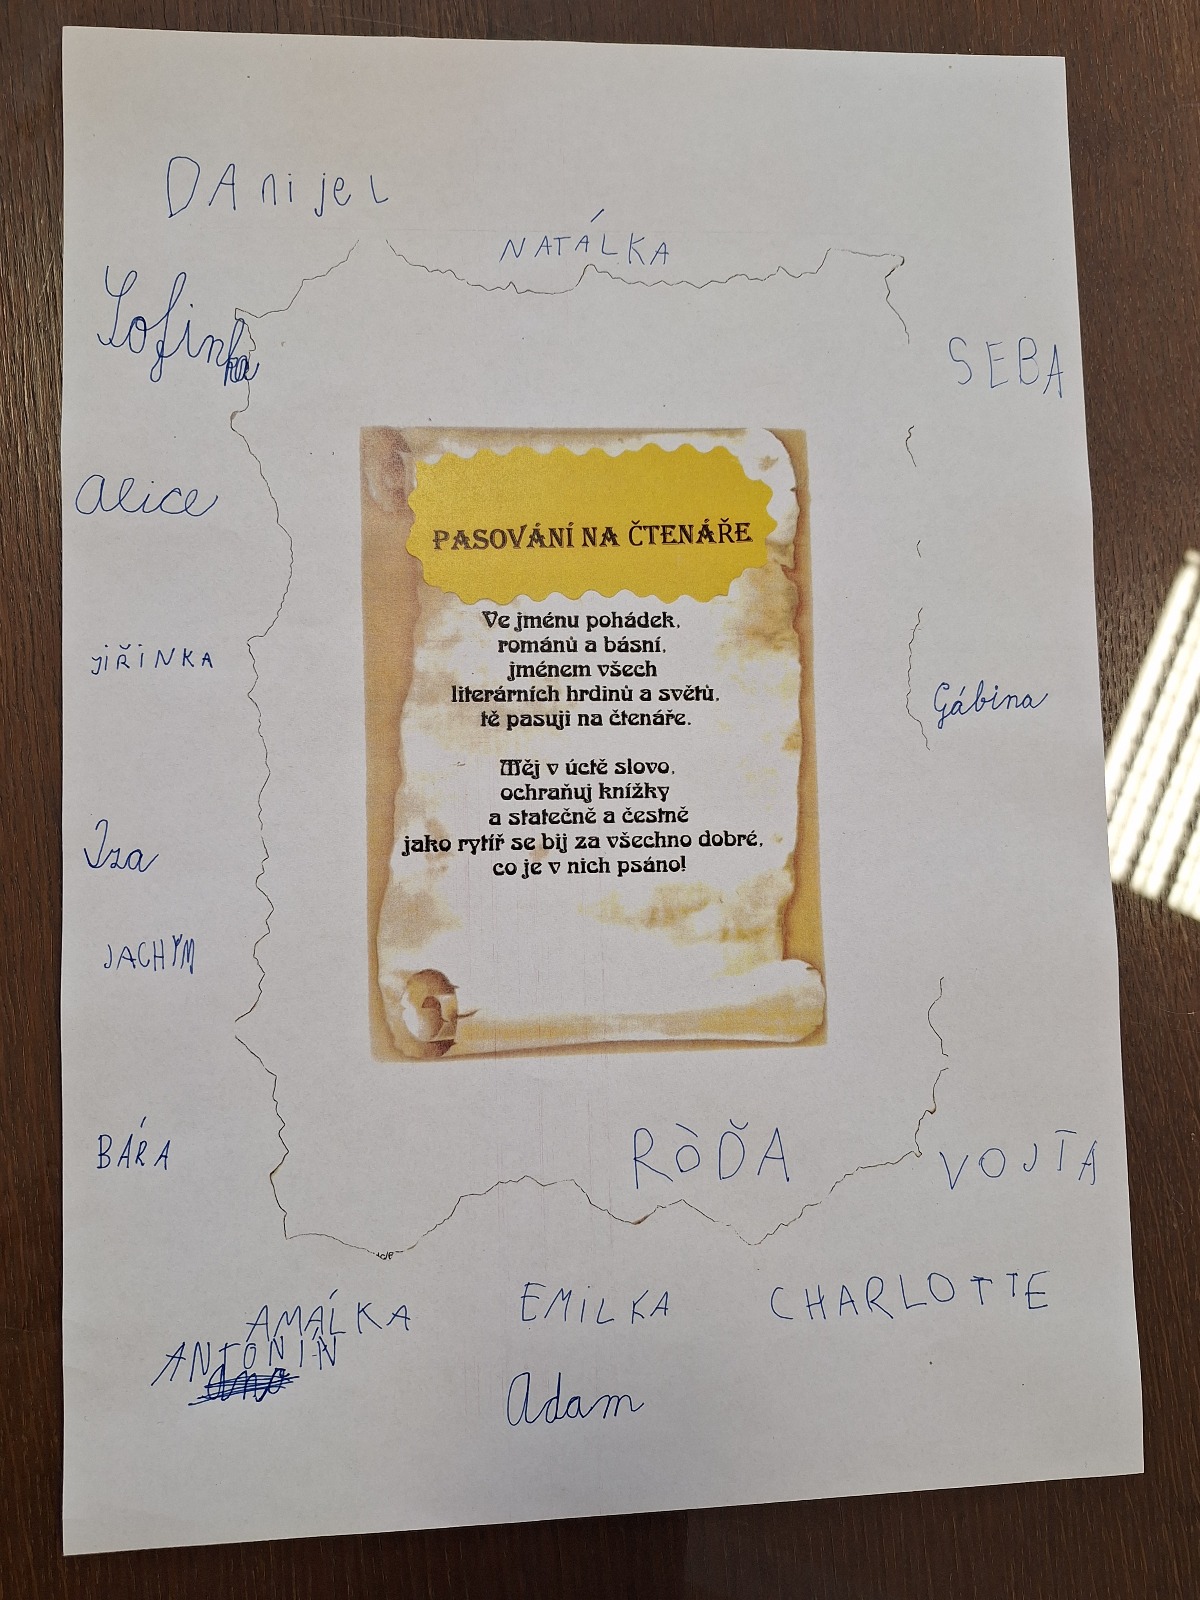 DAnijeL
NATÁLKA
Sofinka
SEBA
Alice
PASOVÁNÍ NA ČTENÁŘE
Ve jménu pohádek,
románů a básní,
jménem všech
literárních hrdinů a světů,
tě pasuji na čtenáře.
Měj v úctě slovo,
ochraňuj knížky
a statečně a čestně
jako rytíř se bij za všechno dobré,
co je v nich psáno!
JIŘINKA
Gábina
Iza
JACHÝM
BÁRA
RÒĎA
VOJŤA
AMÁLKA
EMILKA
CHARLOTTE
ANTONÍN
Adam